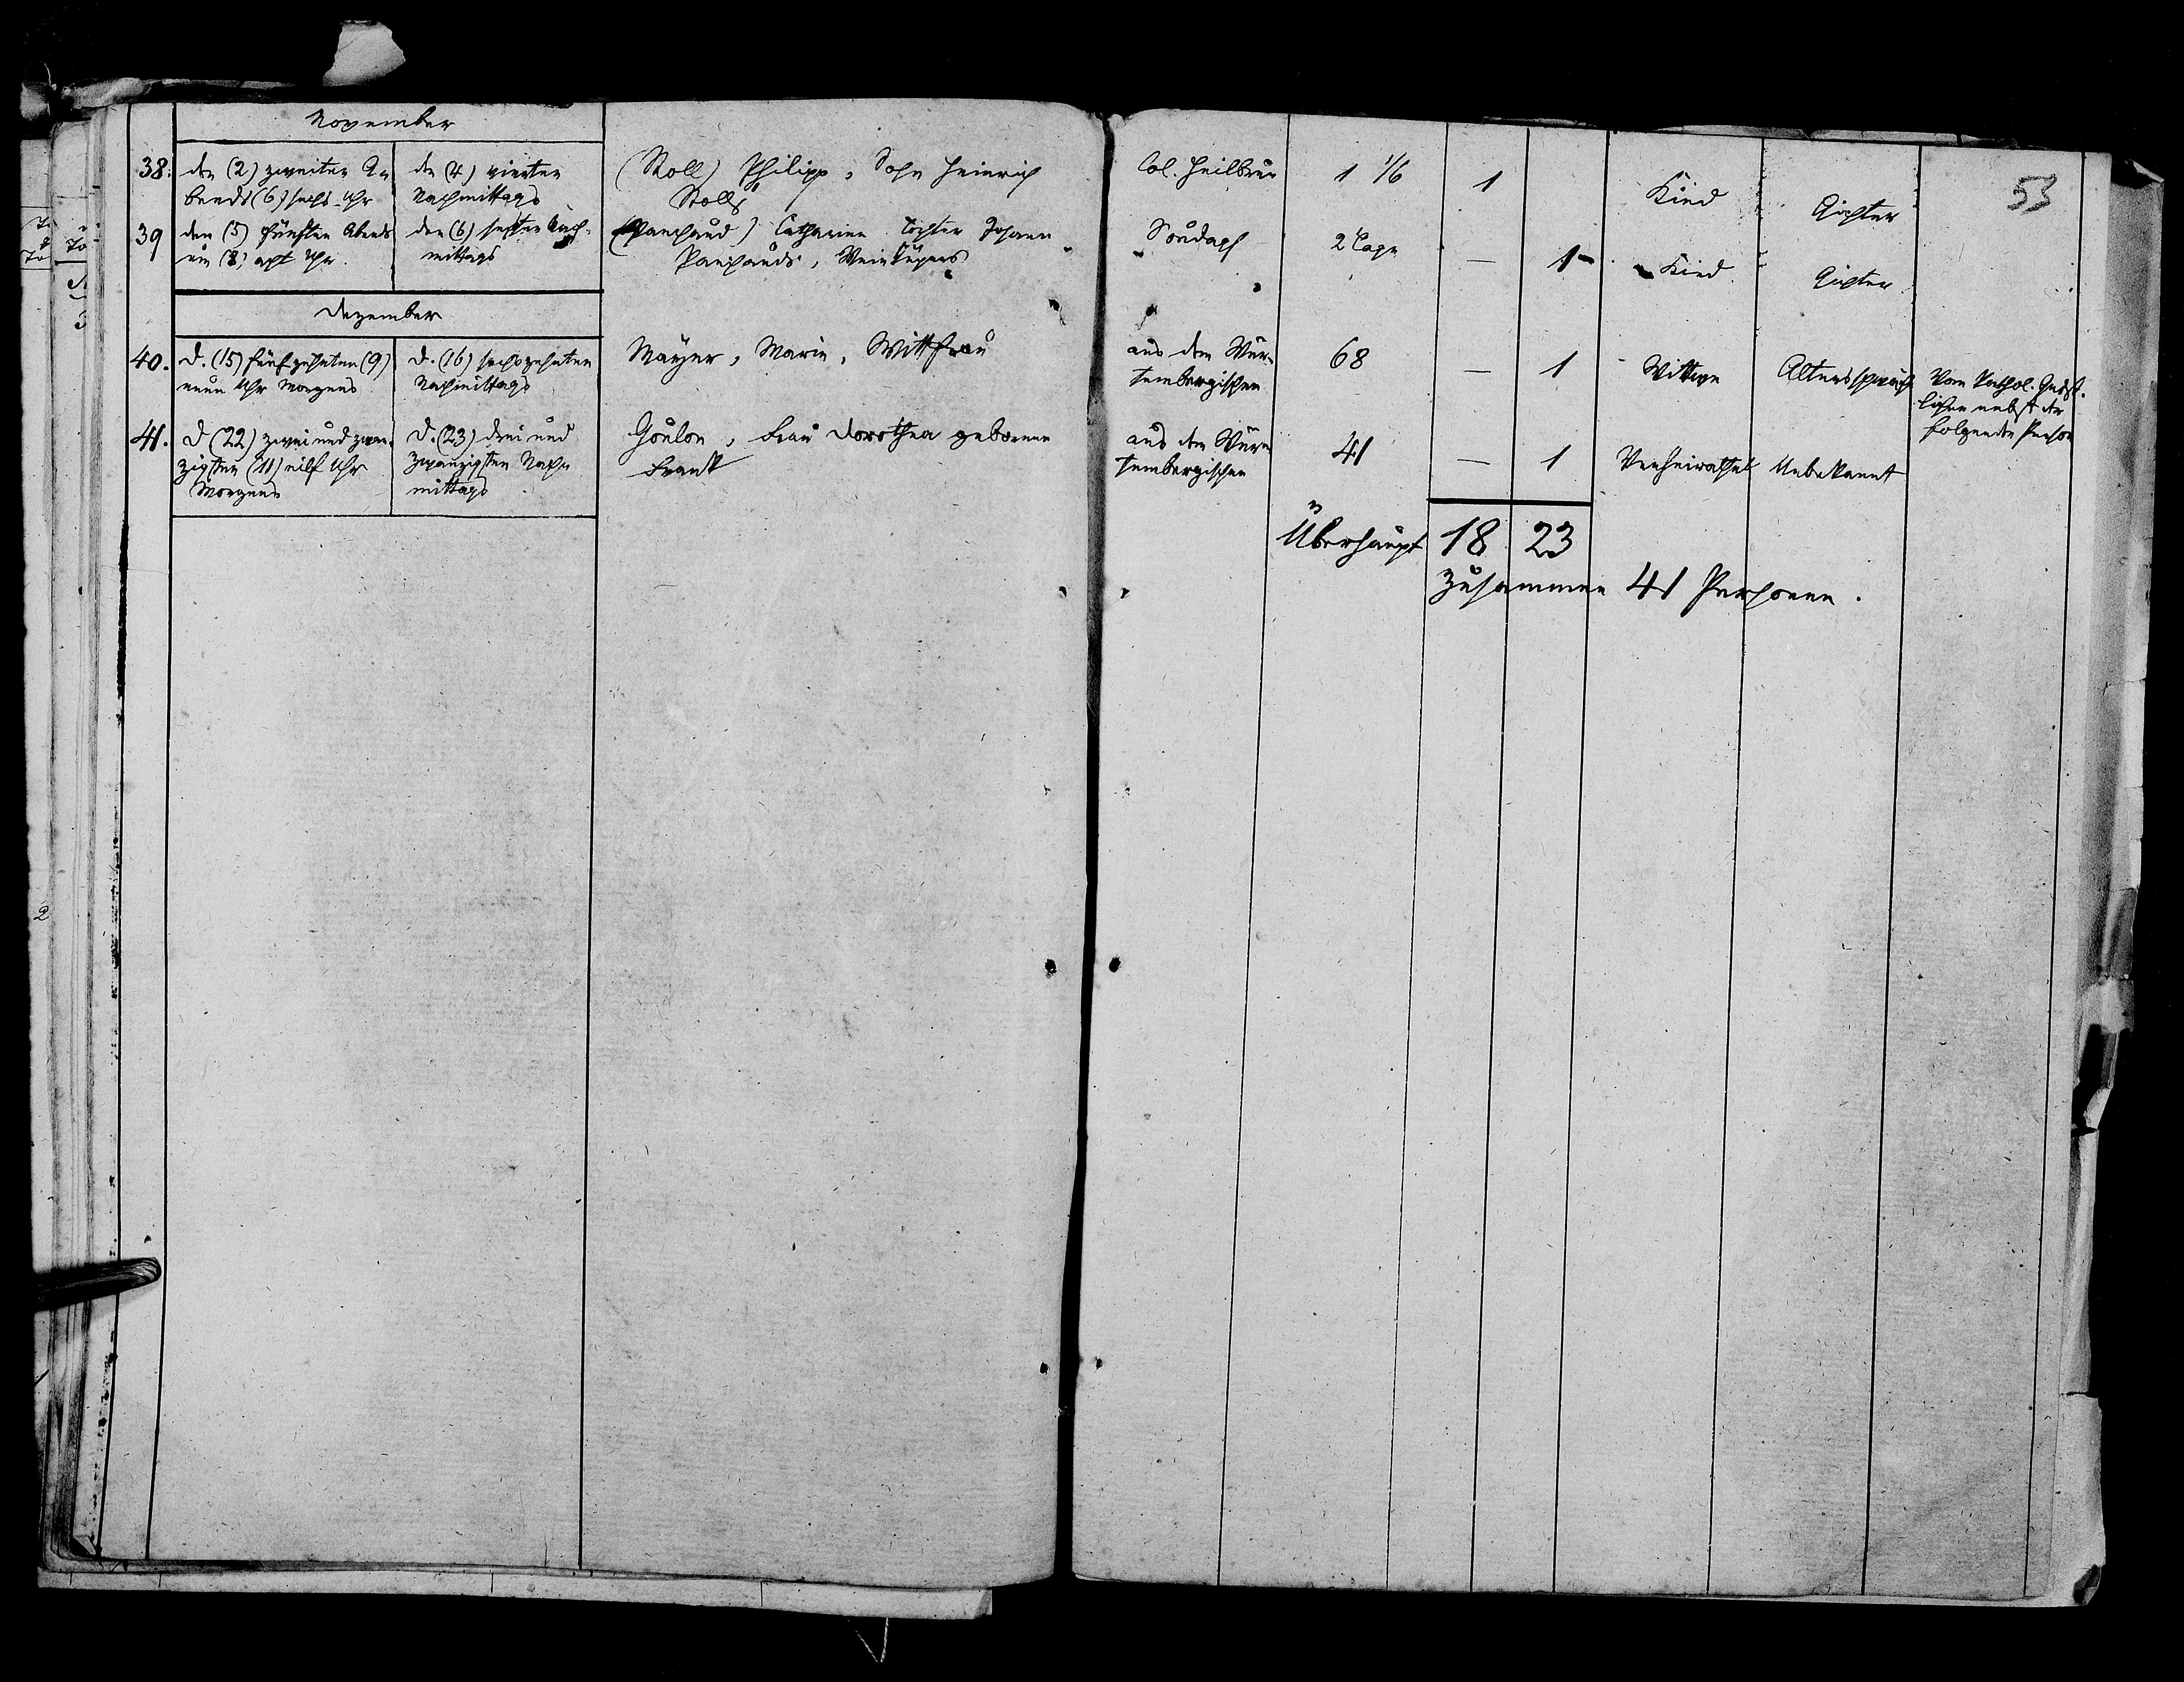 November
38. den (2) zweiten A=
bends (6) sechs Uhr
den (4) vierten
Nachmittags
(Stoll) Philipp, Sohn Heinrich
Stolls
Col. Heilbrun
1 1/6
1
Kind
Gichter
53
39 den (5) fünften Abends
um (8) acht Uhr.
den (6) sechsten Nach=
mittags
(Panchaud) Catharine Tochter Johann
Panchauds, Weinküpers
Soudach
2 Tage
—
1
Kind
Gichter
Dezember
40. d. (15) fünfzehnten (9)
neun Uhr Morgens
d. (16) sechszehnten
Nachmittags
Mayer, Marie, Wittfrau
aus dem Wür=
tembergischen
68
—
1
Wittwe
Altersschwäche
Vom Kathol. Geist=
lichen nebst der
folgenden Person
41. d (22) zwei und zwan=
zigsten (11) eilf Uhr
Morgens
d. (23) drei und
zwanzigsten Nach=
mittags
Goulon, Frau Dorothea geborene
Frank
aus dem Würt
tembergischen
41
—
1
Verheirathet
Unbekannt
Überhaupt 18 23
Zusammen 41 Personen.